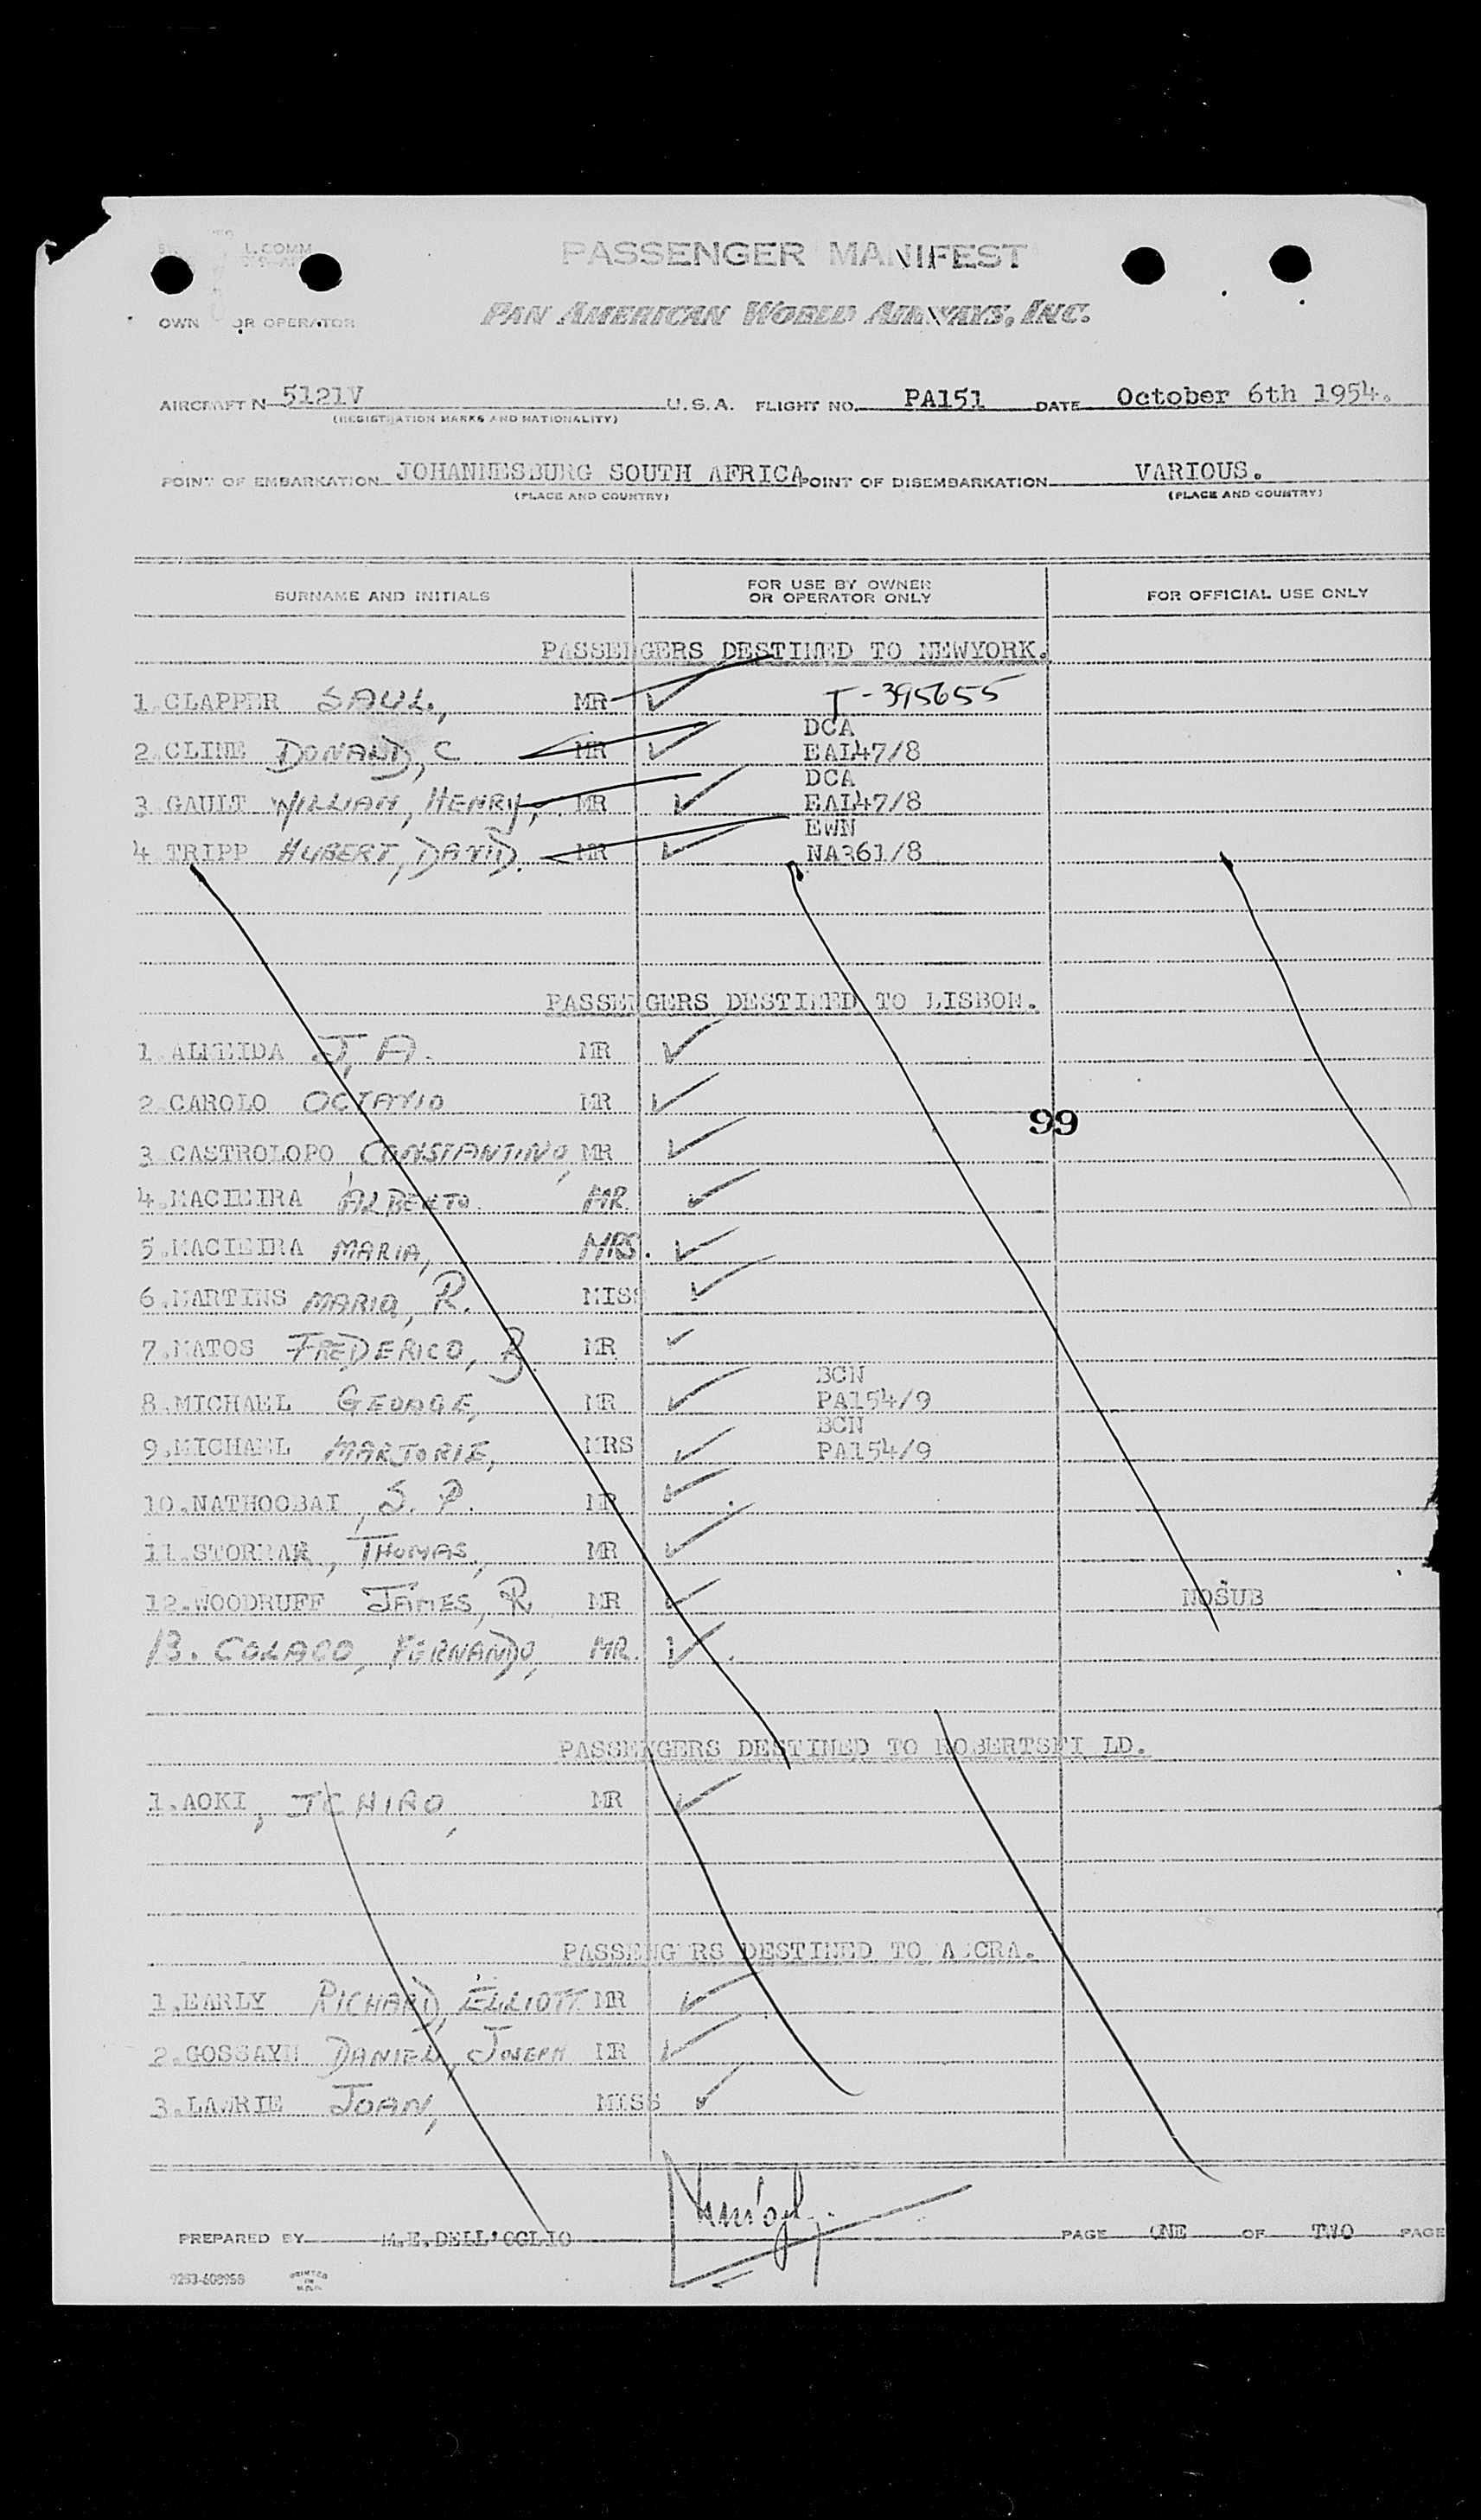 PASSENGER MANIFEST
PAN AMERICAN WORLD AIRWAYS, INC.
OWN OR OPERATOR
AIRCRAFT N 5121V U.S.A. FLIGHT NO. PA151 DATE October 6th 1954.
(REGISTRATION MARKS AND NATIONALITY)
POINT OF EMBARKATION JOHANNESBURG SOUTH AFRICA POINT OF DISEMBARKATION VARIOUS.
(PLACE AND COUNTRY) (PLACE AND COUNTRY)
SURNAME AND INITIALS FOR USE BY OWNER OR OPERATOR ONLY FOR OFFICIAL USE ONLY
PASSENGERS DESTINED TO NEWYORK.
1.CLAPPER SAUL., MR T-395655
DCA
2.CLINE DONALD, C MR EAL47/8
DCA
3.GAULT WILLIAM, HENRY, MR EAL47/8
EWN
4.TRIPP HUBERT, DAVID. MR NA361/8
PASSENGERS DESTINED TO LISBON.
1.ALMEIDA J, A. MR
2.CAROLO OCTAVIO MR
99
3.CASTROLOPO, CONSTANTINO, MR
4.MACIEIRA ALBERTO. MR.
5.MACIEIRA MARIA, MRS.
6.MARTINS MARIA, R. MISS
7.MATOS FREDERICO, MR
BCN
8.MICHAEL GEORGE, MR PA154/9
BCN
9.MICHAEL MARJORIE, MRS PA154/9
10.NATHOOBAI, S. P. MR
11.STORRAR, THOMAS, MR
12.WOODRUFF JAMES, R MR NOSUB
13. COLACO, FERNANDO, MR.
PASSENGERS DESTINED TO ROBERTSFI LD.
1.AOKI, ICHIRO, MR
PASSENG RS DESTINED TO ACCRA.
1.EARLY RICHARD, ELLIOTT MR
2.GOSSAYN DANIEL, JOSEPH MR
3.LAWRIE JOAN, MISS
PREPARED BY M.E.DELL'OGLIO PAGE ONE OF TWO PAGE
9263-608958 PRINTED IN